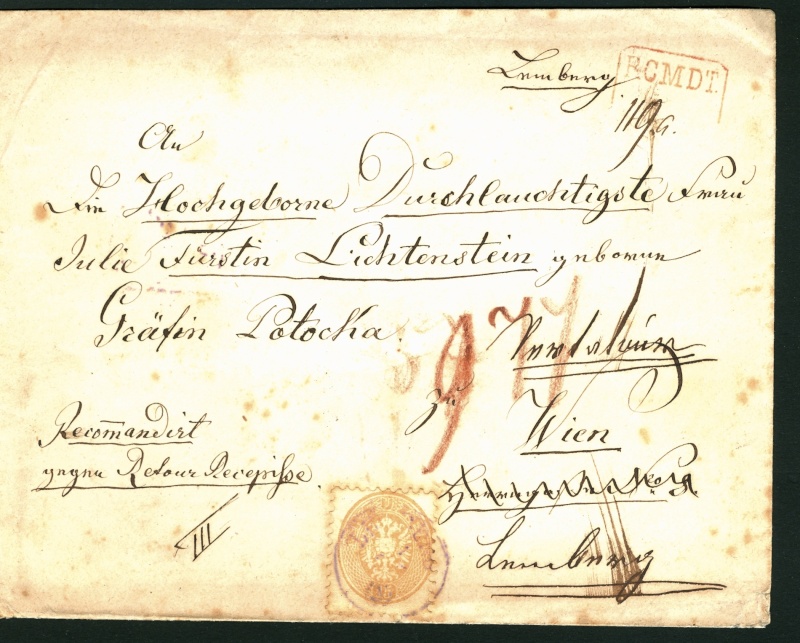 Lemberg
RCMDT.
119
An
Die Hochgeborne Durchlauchtigste Frau
Julie Fürstin Lichtenstein geborne
Gräfin Potocka.
977
zu
Wien
Recom̄andirt
gegen Retour Recepisse.
III
Lemberg